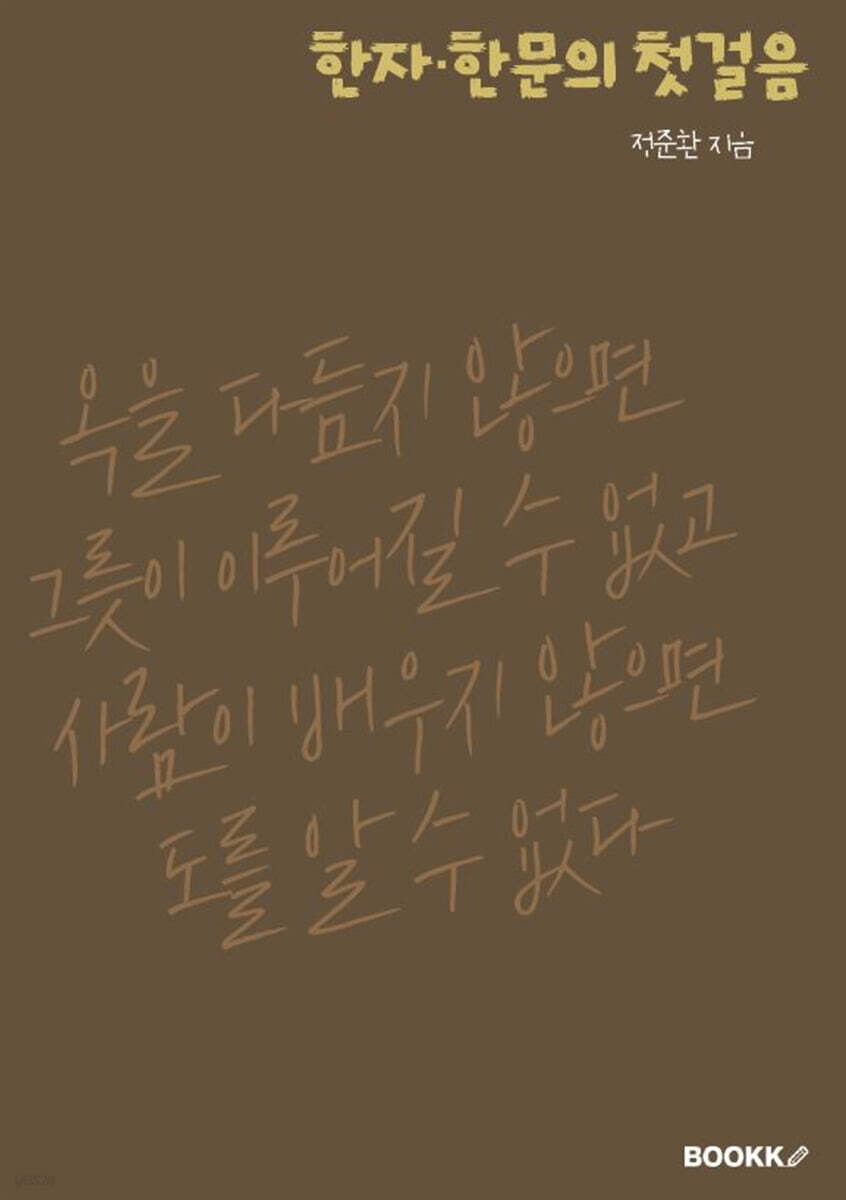 한자·한문의 첫걸음
정준환 지음
옥을 다듬지 않으면
그릇이 이루어질 수 없고
사람이 배우지 않으면
도를 알 수 없다
BOOKK